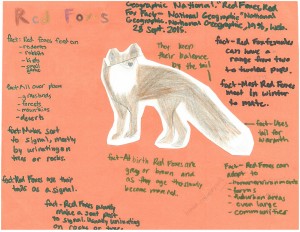 Red Foxes
Geographic National." Red Foxes, Red
Fox Facts- National Geographic "National
Geographic. National Geographic, 1996, Web.
28 Sept. 2015.
fact- Red Foxes feed on
- rodents
- rabbits
- birds
- small
game
fact-
- grasslands
- forests
- mountains
- deserts
fact-
to signal, mostly
by urinating on
tree or rocks.
fact- Red Foxes use their
tails as a signal.
fact- Red Foxes
make a scent post
to signal. Usually urinating
on rocks or trees
They keep
their balance
by the tail
fact- At birth Red Foxes are
gray or brown and
as they age they usually
become
fact- Red Foxes females
can have a
range from two
to twelve pups.
fact- Most Red Foxes
meet in winter
to mate.
fact- Uses
tail for
warmth
fact- Red Foxes can
adapt to
- human environments
- farms
- suburban areas
- even large
communities